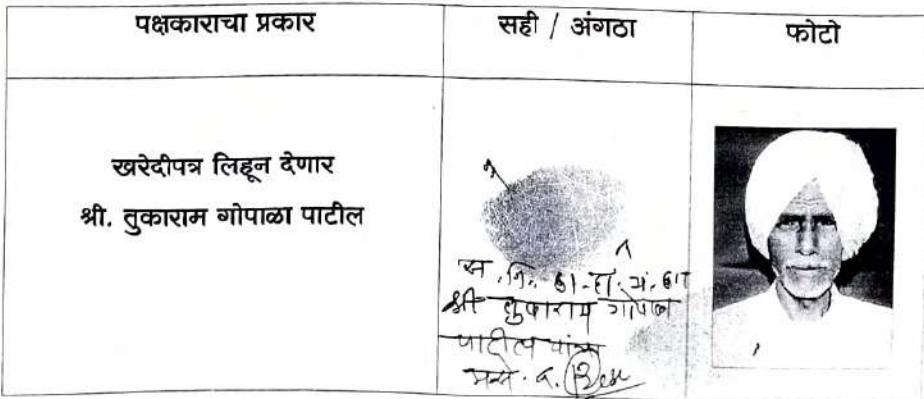 पक्षकाराचा प्रकार
सही / अंगठा
फोटो
खरेदीपत्र लिहून देणार
श्री. तुकाराम गोपाळा पाटील
श्री तुकाराम गोपाळ
पाटील यांचा